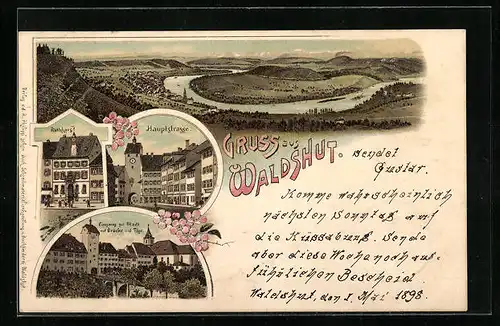 Rathhaus
Hauptstrasse
Eingang zur Stadt
mit Brücke und Thor
GRUSS AUS
WALDSHUT.
sendet
Gustav.
Komme wahrscheinlich
nächsten Sonntag auf
die Küssaburg. Sende
aber diese Woche noch aus-
führlichen Bescheid
Waldshut, den 1. Mai 1898.